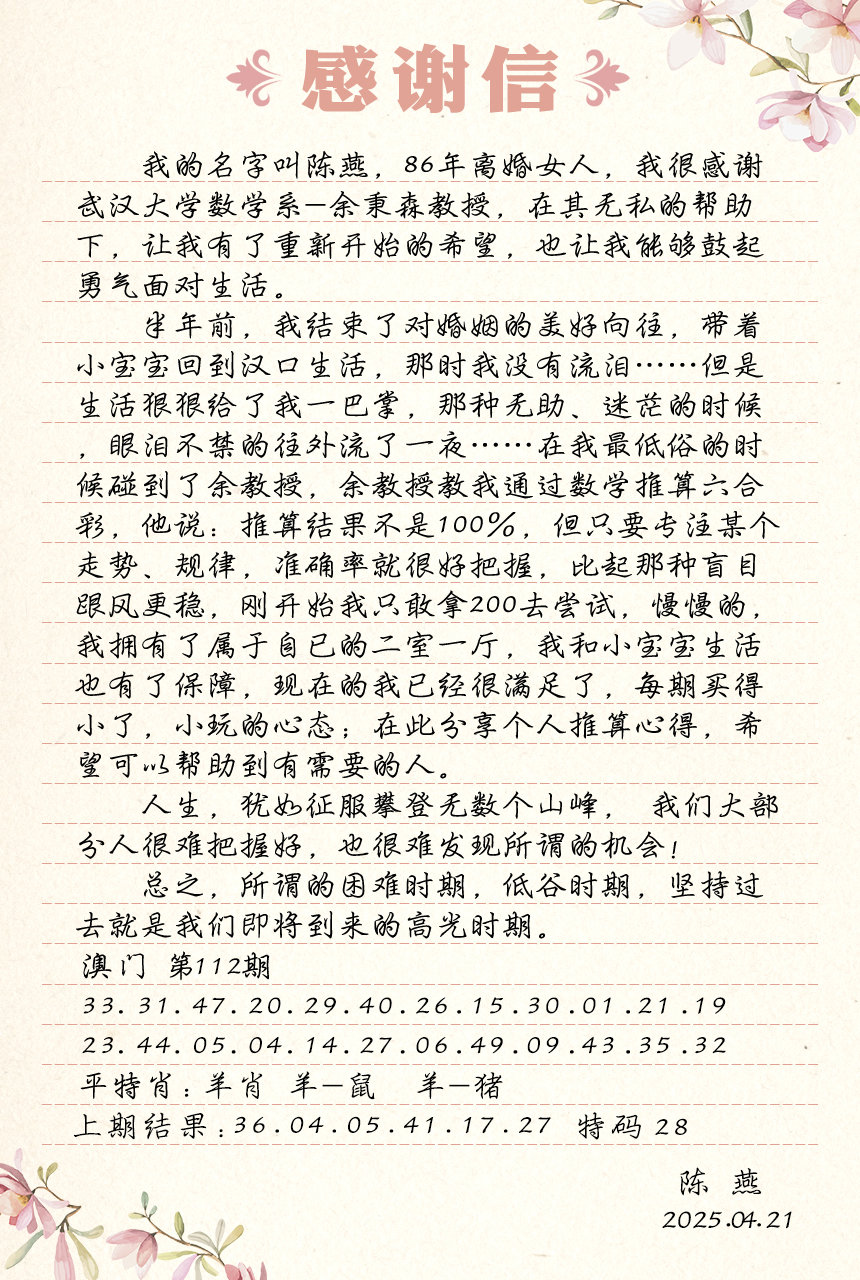 感谢信
我的名字叫陈燕，86年离婚女人，我很感谢
武汉大学数学系—余秉森教授，在其无私的帮助
下，让我有了重新开始的希望，也让我能够鼓起
勇气面对生活。
半年前，我结束了对婚姻的美好向往，带着
小宝宝回到汉口生活，那时我没有流泪……但是
生活狠狠给了我一巴掌，那种无助、迷茫的时候
，眼泪不禁的往外流了一夜……在我最低俗的时
候碰到了余教授，余教授教我通过数学推算六合
彩，他说：推算结果不是100%，但只要专注某个
走势、规律，准确率就很好把握，比起那种盲目
跟风更稳，刚开始我只敢拿200去尝试，慢慢的，
我拥有了属于自已的二室一厅，我和小宝宝生活
也有了保障，现在的我已经很满足了，每期买得
小了，小玩的心态；在此分享个人推算心得，希
望可以帮助到有需要的人。
人生，犹如征服攀登无数个山峰， 我们大部
分人很难把握好，也很难发现所谓的机会！
总之，所谓的困难时期，低谷时期，坚持过
去就是我们即将到来的高光时期。
澳门 第112期
33.31.47.20.29.40.26.15.30.01.21.19
23.44.05.04.14.27.06.49.09.43.35.32
平特肖：羊肖 羊—鼠 羊—猪
上期结果：36.04.05.41.17.27 特码 28
陈 燕
2025.04.21